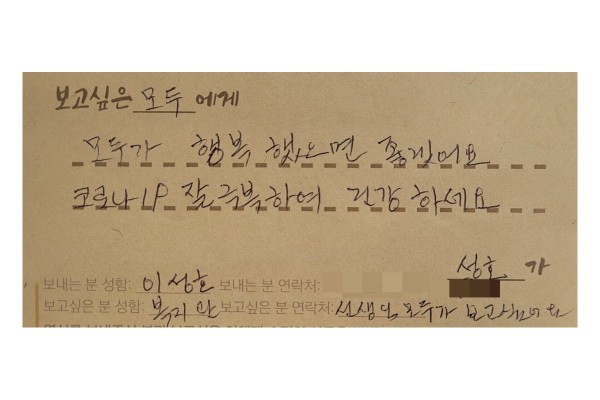 보고싶은 모두 에게
모두가 행복 했으면 좋겠어요
코로나19 잘 극복하여 건강 하세요
성호 가
보내는 분 성함: 이성호 보내는 분 연락처:
보고싶은 분 성함: 복지관 보고싶은 분 연락처: 선생님 모두가 보고싶어요